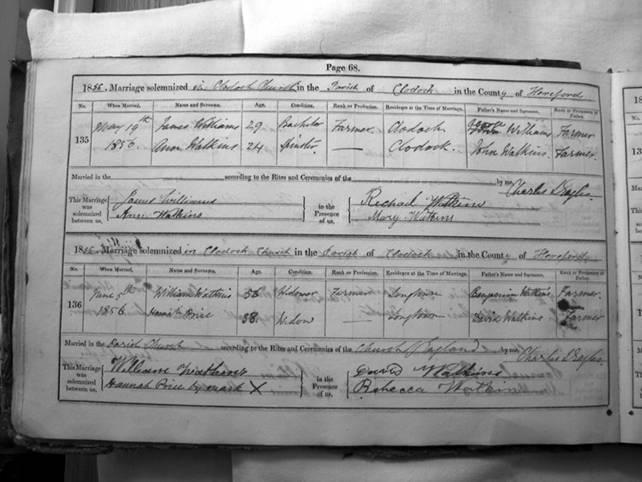 Page 68.
1856. Marriage solemnized in Clodock Church in the Parish of Clodock in the County of Hereford
No. When Married. Name and Surname. Age. Condition. Rank or Profession. Residence at the Time of Marriage. Father's Name and Surname. Rank or Profession of Father.
135 May 19th 1856. James Williams 29 Bachelor Farmer Clodock Williams Farmer
Ann Watkins 24 Spinster — Clodock. John Watkins Farmer
Married in the according to the Rites and Ceremonies of the by me Charles
This Marriage was solemnized between us, James Williams in the Presence of us, Richard Watkins
Ann Watkins Mary Watkins
1856. Marriage solemnized in Clodock Church in the Parish of Clodock in the County of Hereford
No. When Married. Name and Surname. Age. Condition. Rank or Profession. Residence at the Time of Marriage. Father's Name and Surname. Rank or Profession of Father.
136 June 5th 1856 William Watkins 56 Widower Farmer Longtown Benjamin Watkins Farmer
Hannah Price 38. Widow — Longtown David Watkins Farmer
Married in the Parish Church according to the Rites and Ceremonies of the Church England by me Charles
This Marriage was solemnized between us, William Watkins in the Presence of us, David Watkins
Hannah Price by mark X Rebecca Watkins